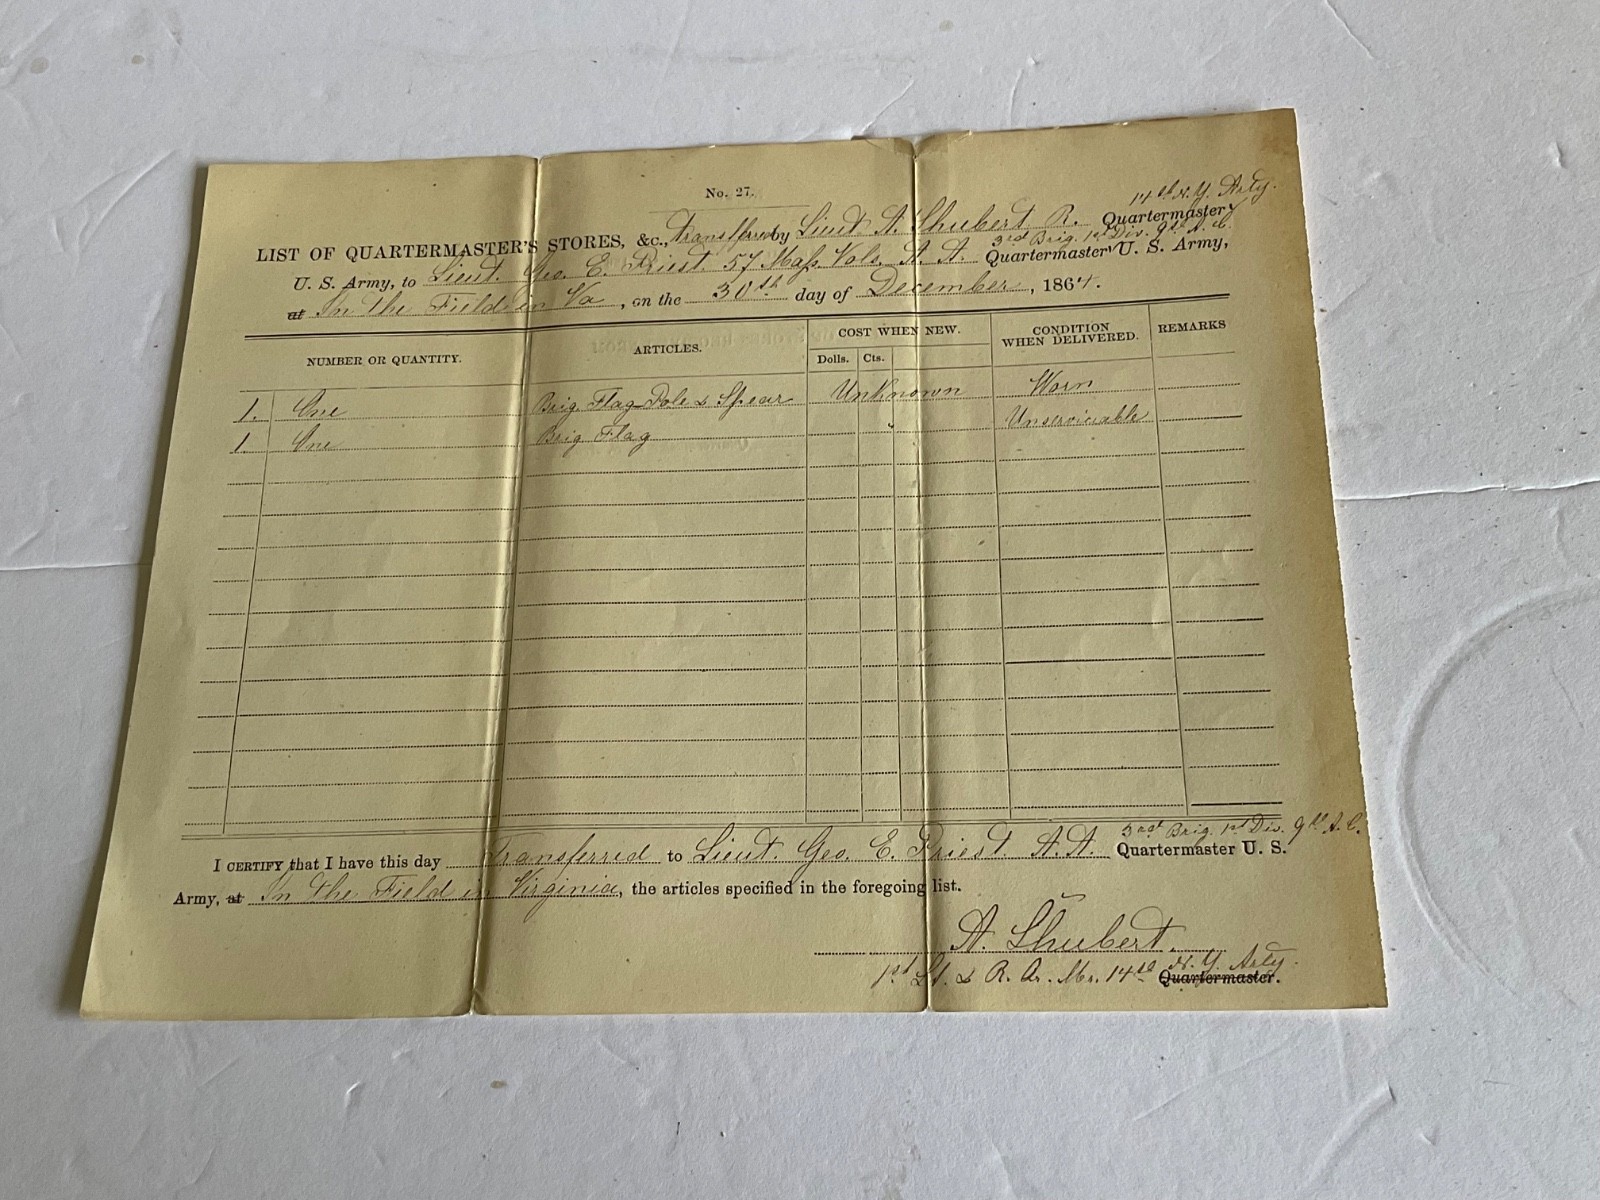 No. 27.
14th N.Y. Arty.
LIST OF QUARTERMASTER'S STORES, &c., Transferred by Lieut A. Shubert R. Quartermaster
3rd Brig. 1st Div. 9th A. C.
U. S. Army, to Lieut. Geo. E. Priest 57 Mass. Vols. A. A. Quartermaster U. S. Army,
at In the Field in Va, on the 30th day of December, 1864.
NUMBER OR QUANTITY. ARTICLES. COST WHEN NEW. CONDITION WHEN DELIVERED. REMARKS
Dolls. Cts.
1. One Brig. Flag Pole & Spear Unknown Worn
1. One Brig Flag Unserviceable
3rd Brig. 1st Div. 9th A. C.
I CERTIFY that I have this day Transferred to Lieut. Geo. E. Priest A.A. Quartermaster U. S.
Army, at In the Field in Virginia, the articles specified in the foregoing list.
A. Shubert
1st Lt. & R. Qr. Mr. 14th N.Y. Arty. Quartermaster.